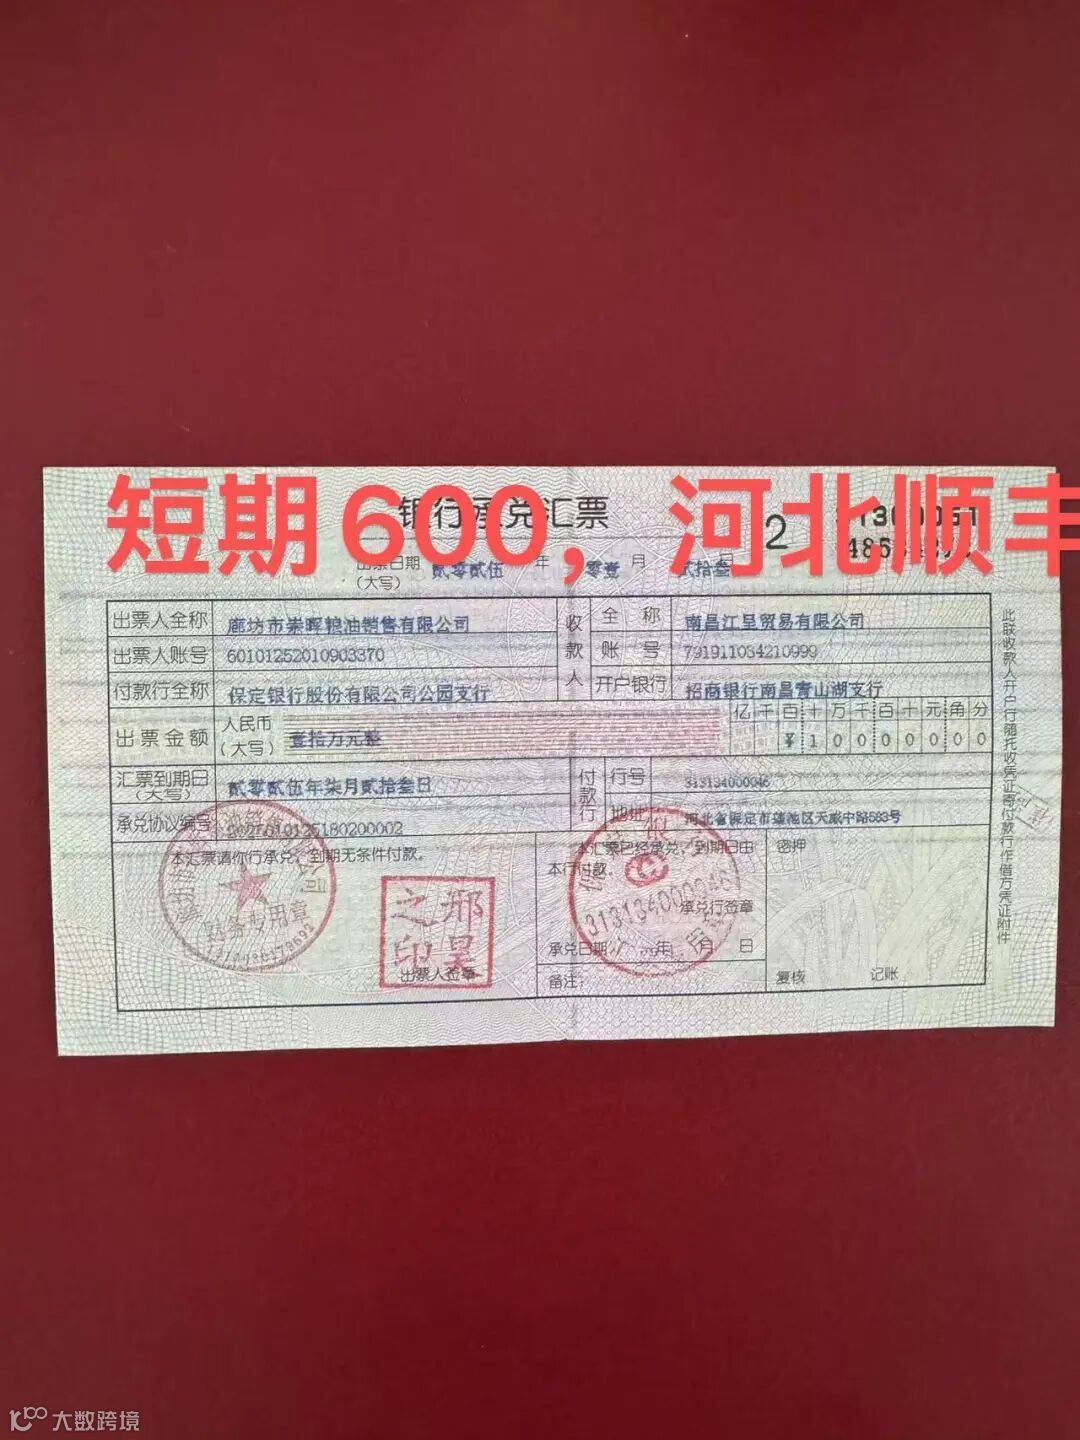 短期600，河北顺丰
银行承兑汇票
2
出票日期 贰零贰伍 年 零壹 月 贰拾叁 日
(大写)
出票人全称 廊坊市崇晖粮油销售有限公司
收款人 全称 南昌江呈贸易有限公司
出票人账号 60101252010903370
账号 791911034210999
付款行全称 保定银行股份有限公司公园支行
开户银行 招商银行南昌青山湖支行
出票金额 人民币(大写) 壹拾万元整
亿千百十万千百十元角分
¥10000000
汇票到期日(大写) 贰零贰伍年柒月贰拾叁日
付款行 行号 313134000046
承兑协议编号
地址 河北省保定市莲池区天威中路583号
本汇票请你行承兑，到期无条件付款。
本汇票已经承兑，到期日由
本行付款。
密押
承兑行签章
财务专用章
邢昊之印
313134000046
出票人签章
承兑日期 年 月 日
备注：
复核 记账
此联收款人开户行随托收凭证寄付款行作借方凭证附件
大数跨境